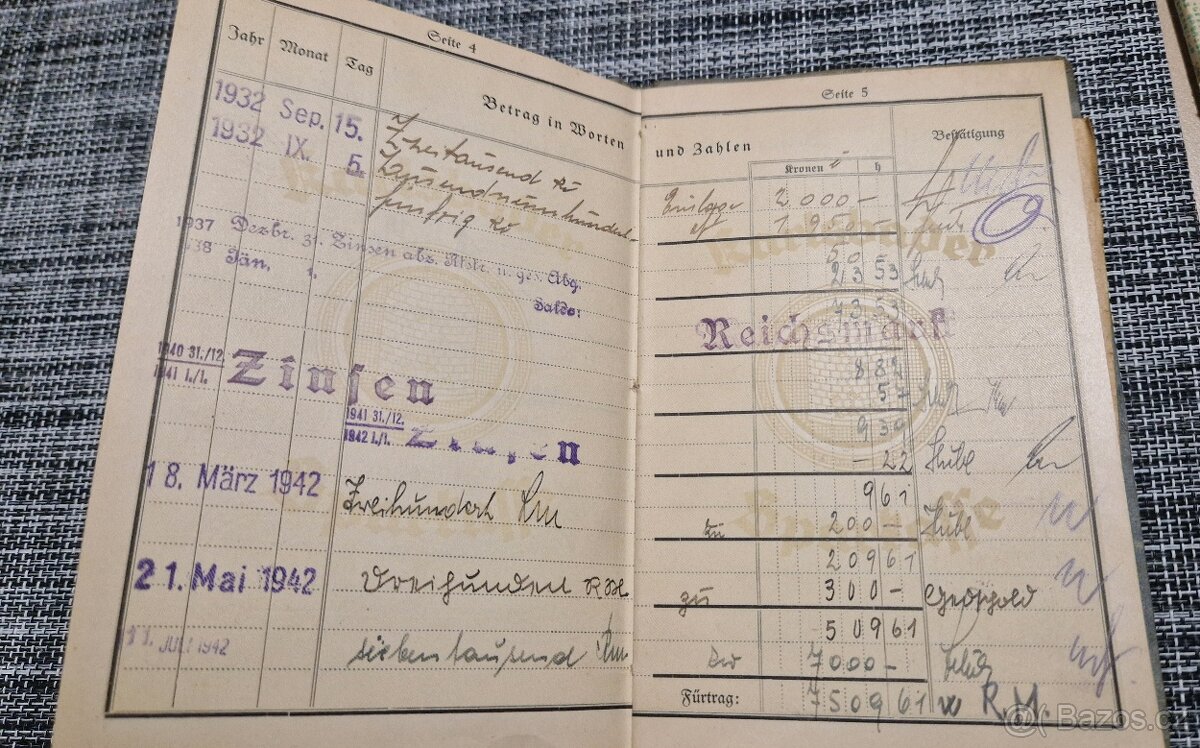 Seite 4
Jahr Monat Tag Betrag in Worten
1932 Sep. 15. Zweitausend Kč
1932 IX. 5. Tausendneunhundert-
fünfzig Kč
1937 Dezbr. 31. Zinsen abz. Rstr. u. ges. Abg.
1938 Jän. 1. Saldo:
1940 31./12.
1941 1./1. Zinsen
1941 31./12.
1942 1./1. Zinsen
18. März 1942 Zweihundert Rm
21. Mai 1942 Dreihundert RM
11. JULI 1942 siebentausend Rm
Seite 5
und Zahlen Bestätigung
Kronen h
Einlage 2000-
1950-
50-
23 53
73 53
Reichsmark
8 82
57
9 39
- 22
9 61
zu 200-
209 61
zu 300-
509 61
zu 7000-
Fürtrag: 7509 61 R.M.
Bazos.cz